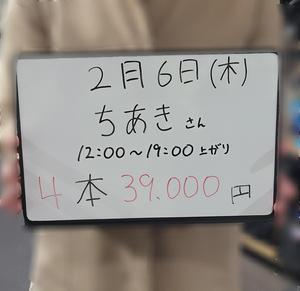 2月6日(木)
ちあきさん
12:00〜19:00上がり
4本39.000円